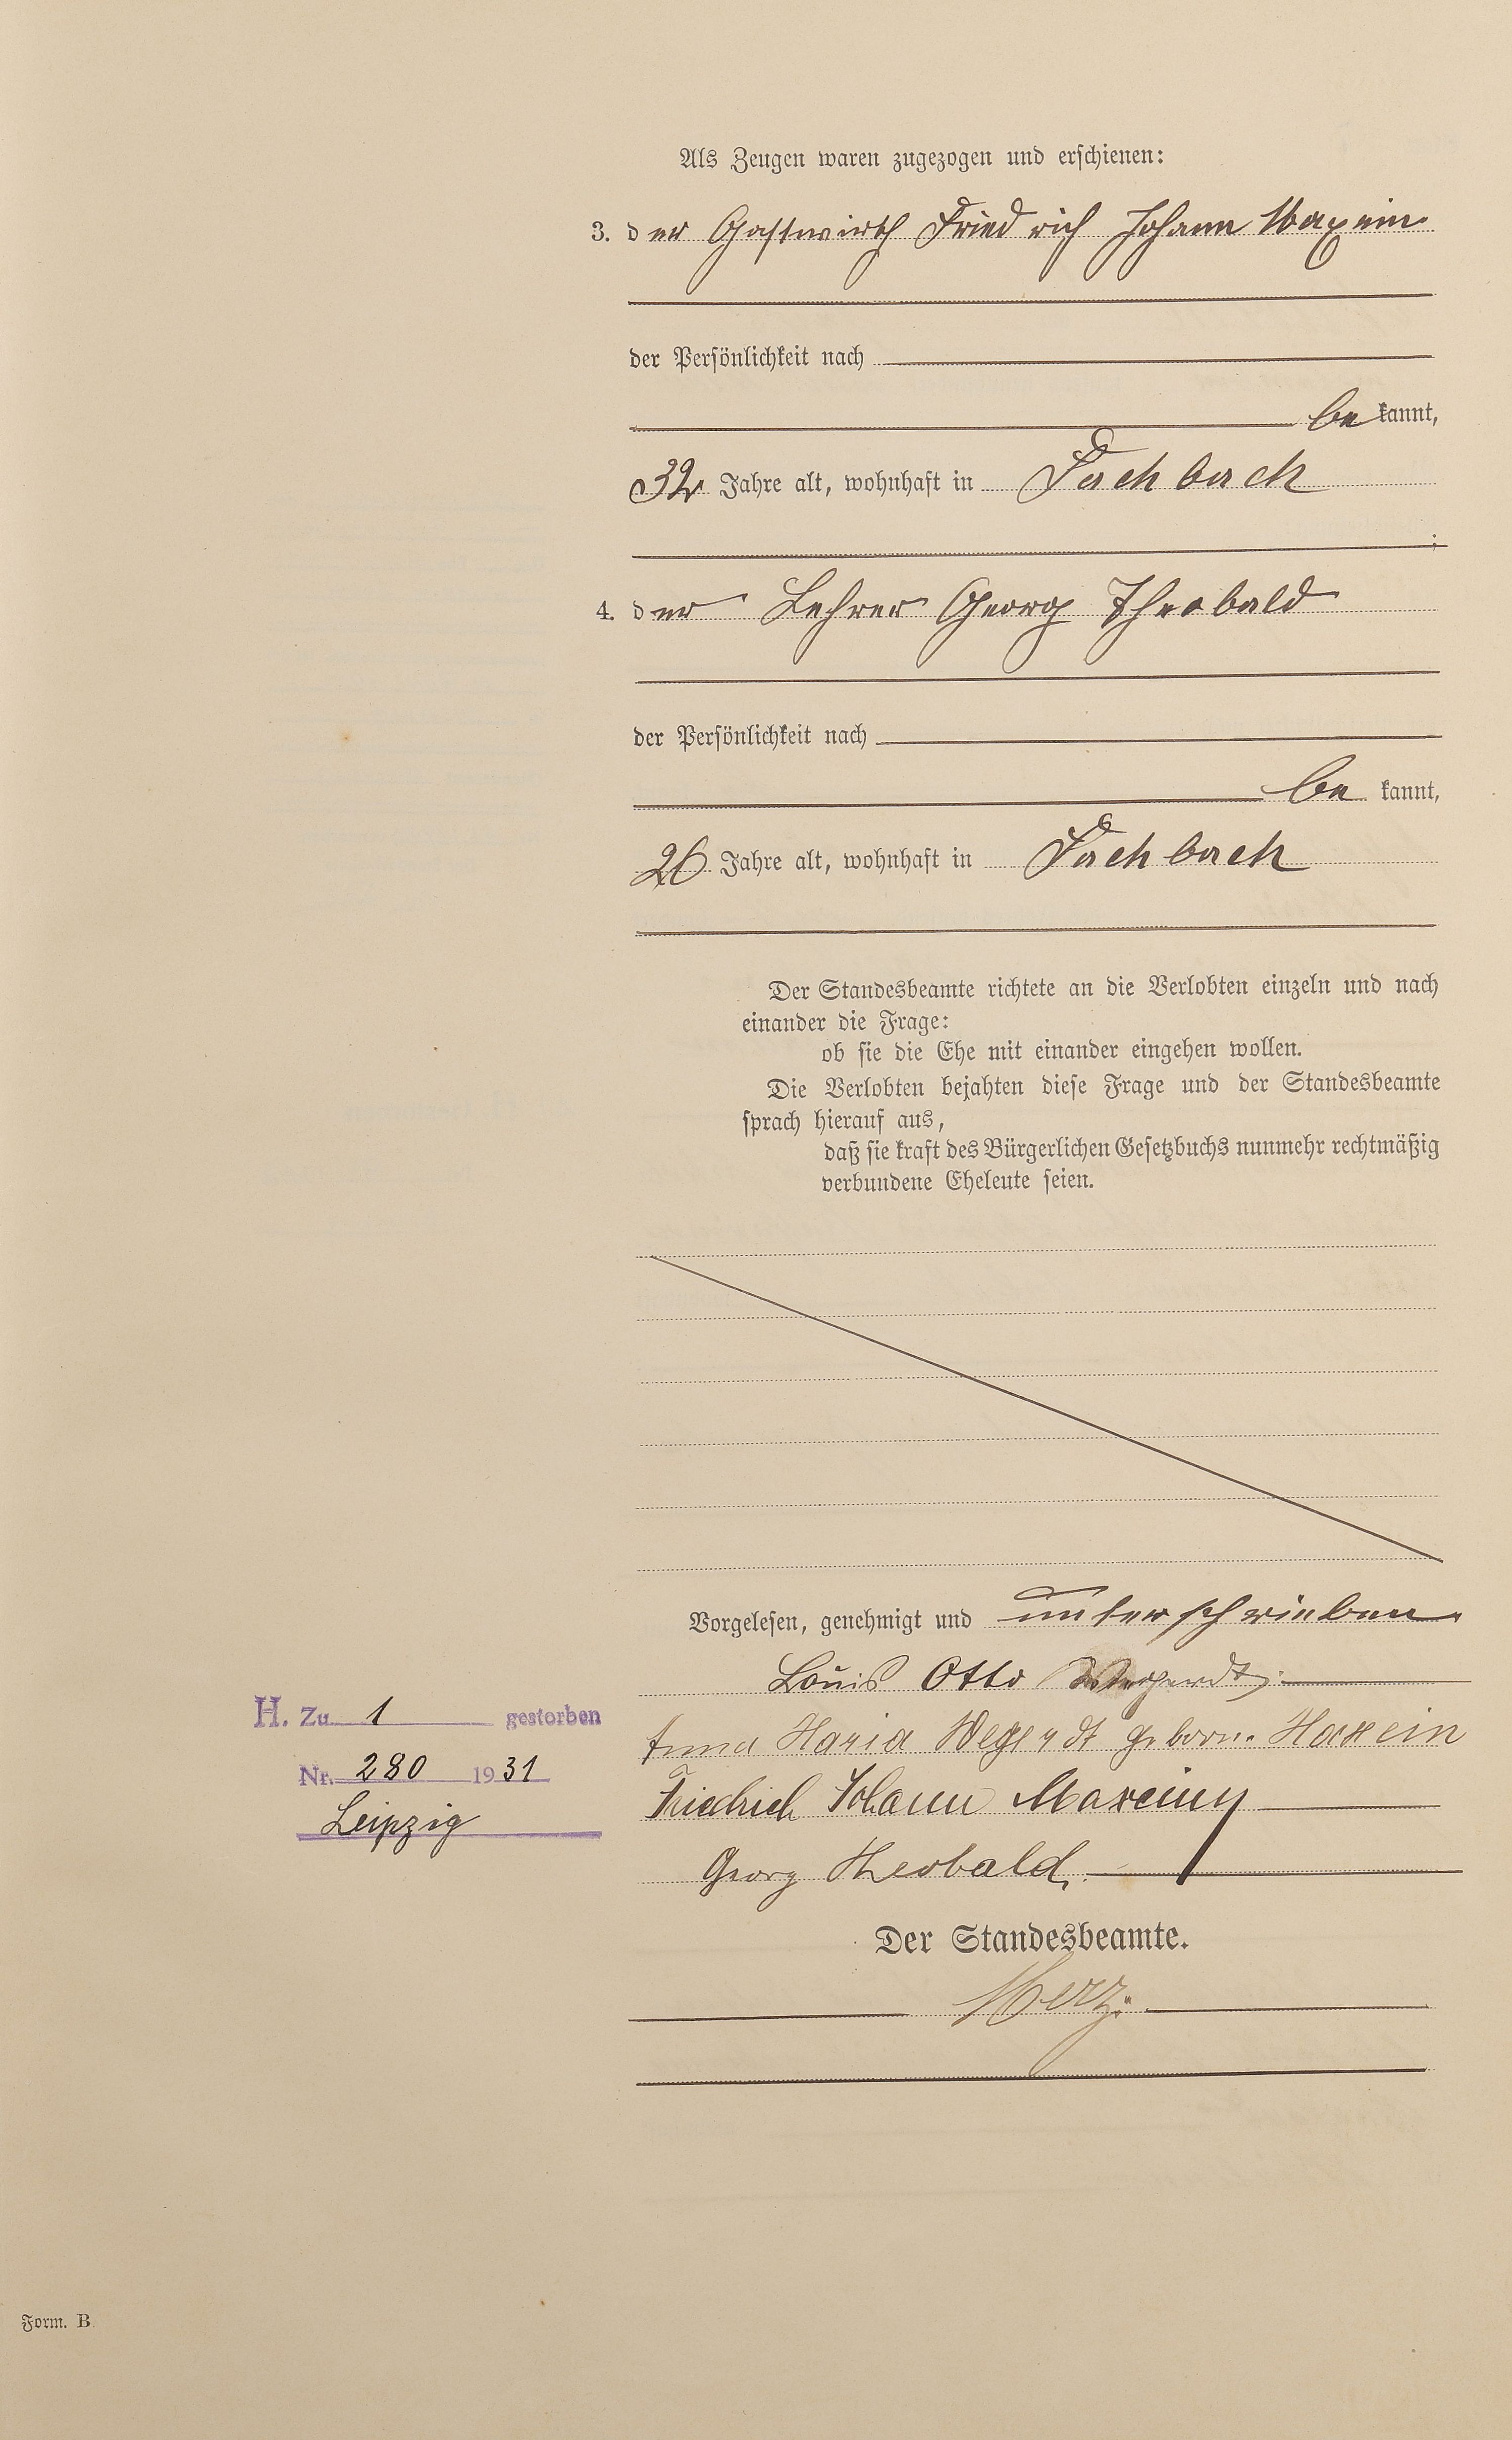 Als Zeugen waren zugezogen und erschienen:
3. der Gastwirth Friedrich Johann Maxein
der Persönlichkeit nach
be kannt,
32 Jahre alt, wohnhaft in Fachbach
;
4. der Lehrer Georg Theobald
der Persönlichkeit nach
be kannt,
26 Jahre alt, wohnhaft in Fachbach
Der Standesbeamte richtete an die Verlobten einzeln und nach
einander die Frage:
ob sie die Ehe mit einander eingehen wollen.
Die Verlobten bejahten diese Frage und der Standesbeamte
sprach hierauf aus,
daß sie kraft des Bürgerlichen Gesetzbuchs nunmehr rechtmäßig
verbundene Eheleute seien.
Vorgelesen, genehmigt und unterschrieben
Louis Otto Wegerdt
Anna Maria Wegerdt geborn. Maxein
Friedrich Johann Maxein
Georg Theobald.
Der Standesbeamte.
Merz.
H. Zu 1 gestorben
Nr. 280 1931
Leipzig
Form. B